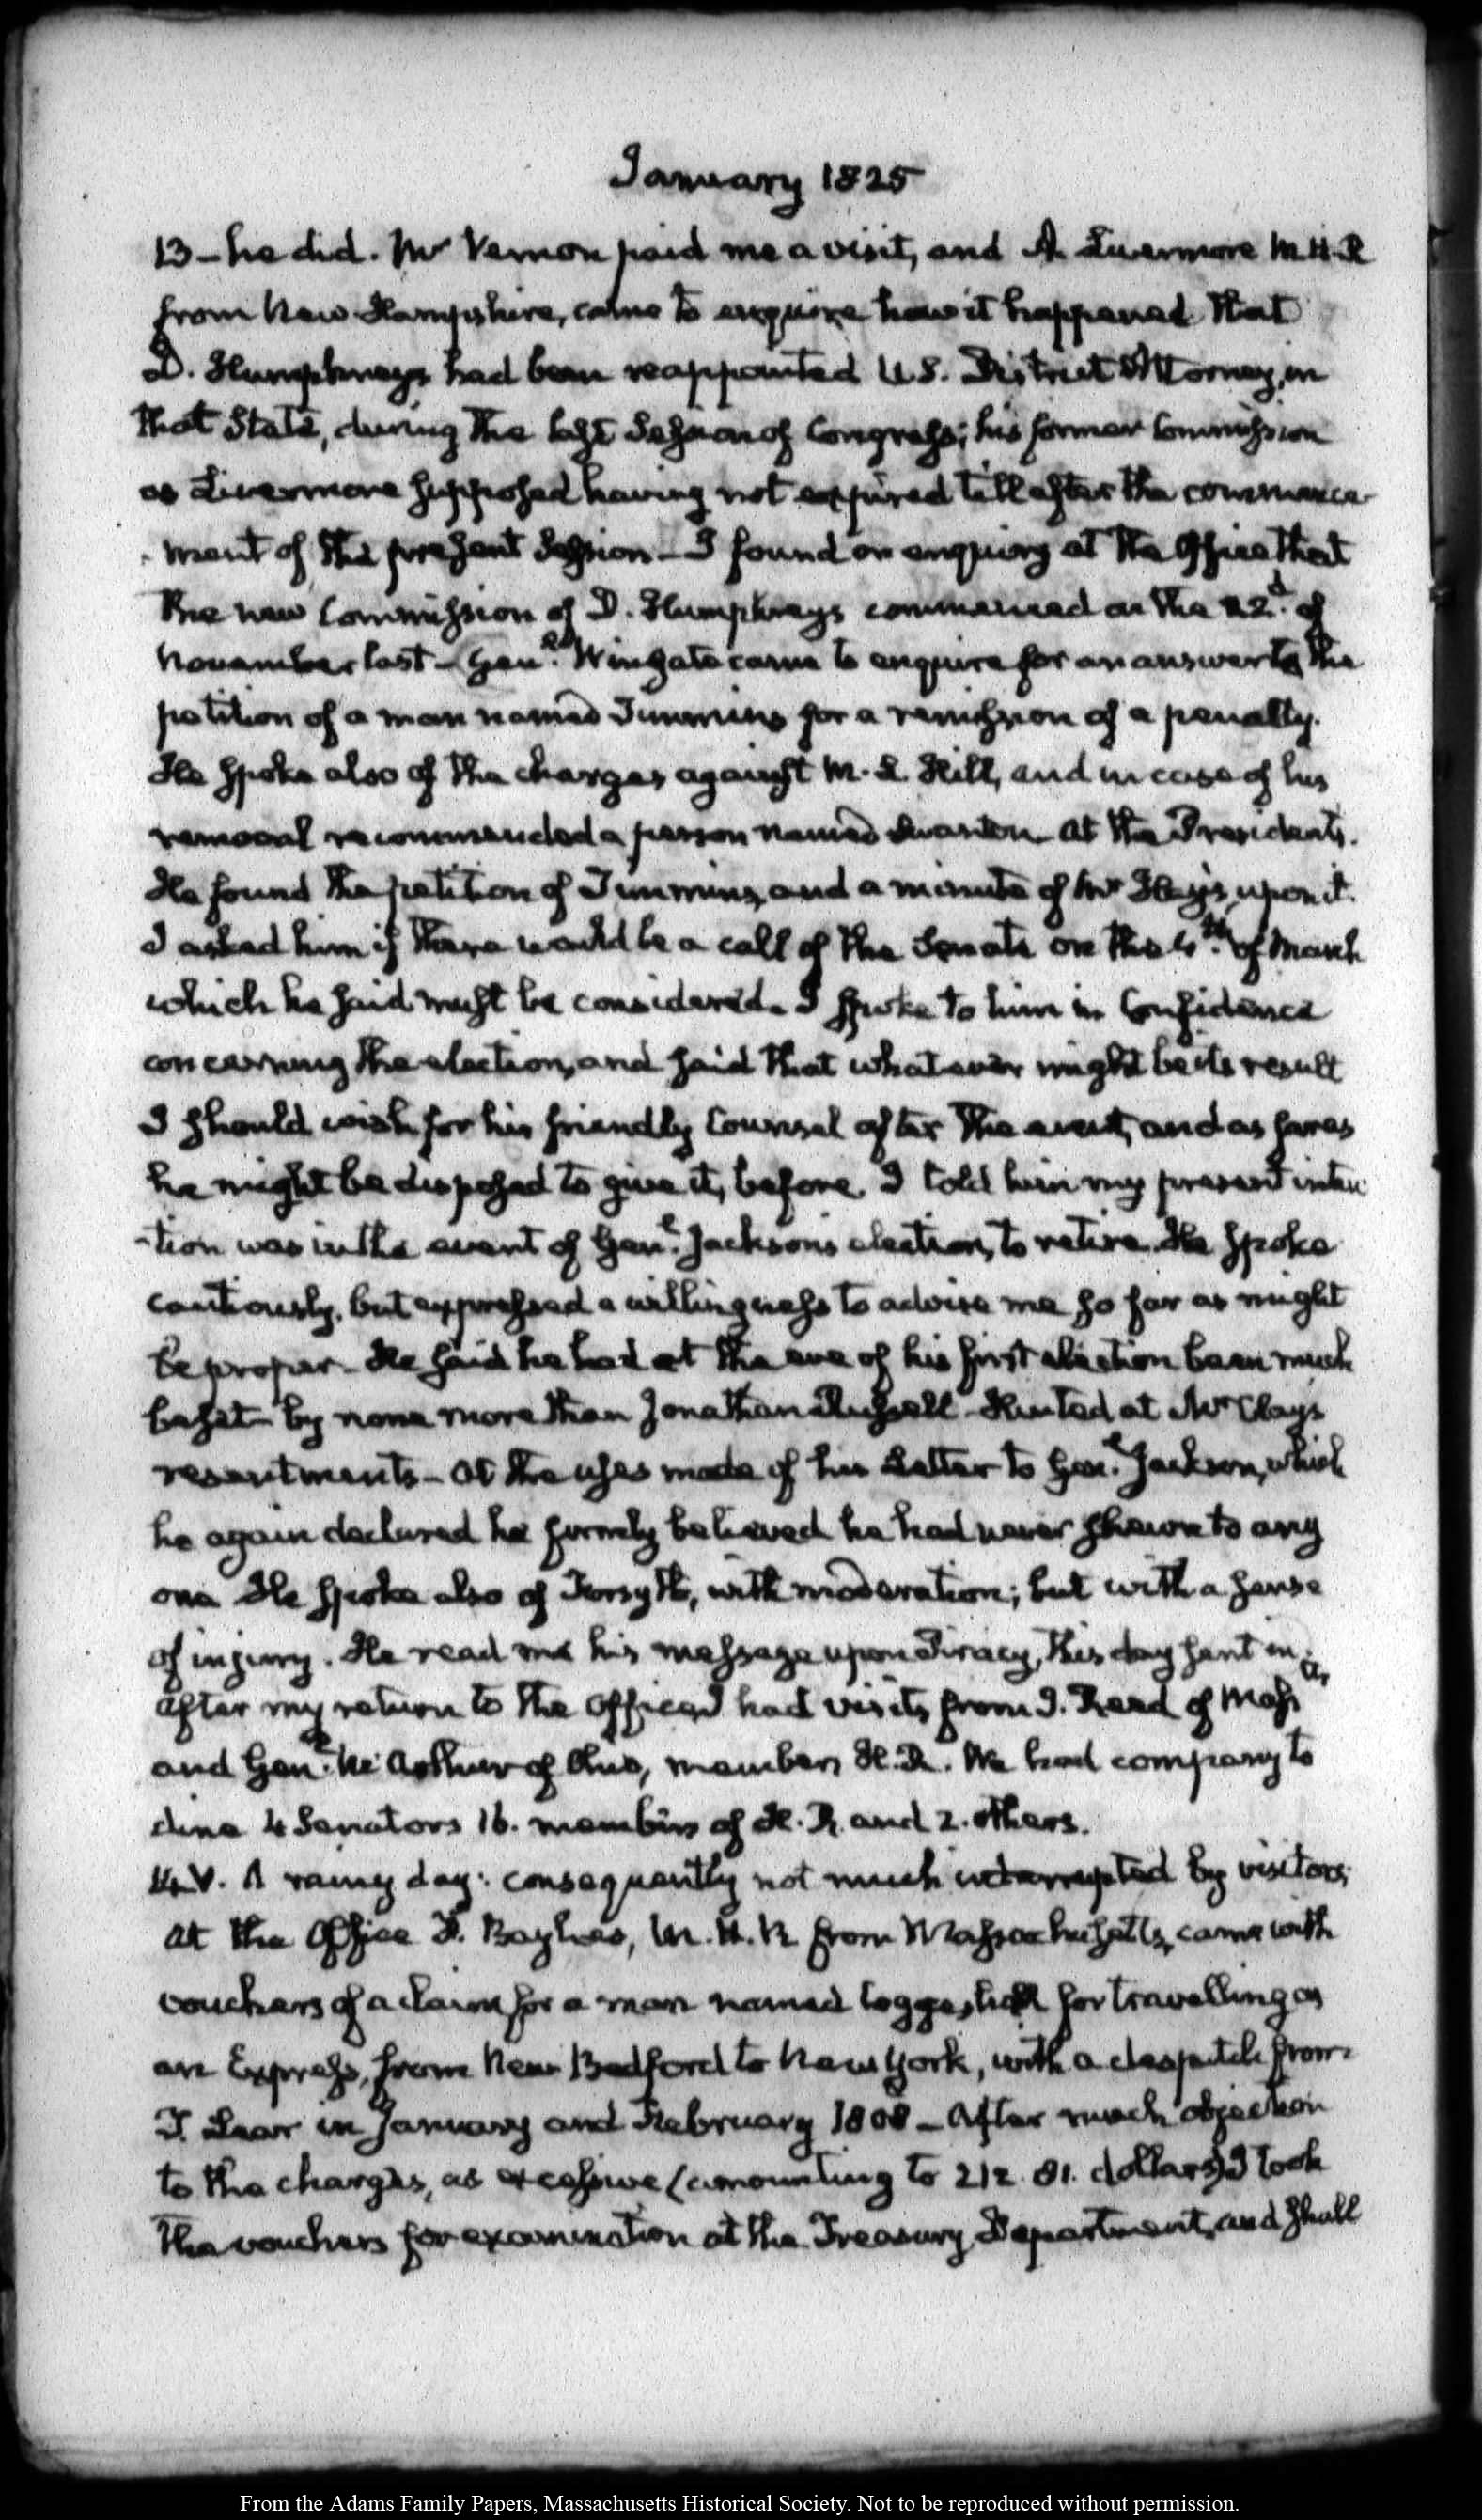 January 1825
13 – he did. Mr Vernon paid me a visit, and A. Livermore M.H.R
from New-Hampshire, came to enquire how it happened that
D. Humphreys had been reappointed U.S. District Attorney, in
that State, during the last Session of Congress; his former Commission
as Livermore supposed having not expired till after the commence
-ment of the present Session – I found on enquiry at the Office that
the new Commission of D. Humphreys commenced on the 22d. of
November last – Genl. Wingate came to enquire for an answer to the
petition of a man named Timmins for a remission of a penalty.
He spoke also of the charges against M. L. Hill, and in case of his
removal recommended a person named at the Presidents.
He found the petition of Timmins, and a minute of Mr Hay's, upon it.
I asked him if there would be a call of the Senate on the 4th. of March
which he said must be considered. I spoke to him in Confidence
concerning the election, and said that whatever might be its result
I should wish for his friendly Counsel after the event, and as far as
he might be disposed to give it, before. I told him my present inten
-tion was in the event of Genl. Jackson's election, to retire. He spoke
cautiously, but expressed a willingness to advise me so far as might
be proper – He said he had at the eve of his first election been much
beset – by none more than Jonathan Russell – Hinted at Mr Clay's
resentments – at the uses made of his Letter to Genl. Jackson, which
he again declared he firmly believed he had never shewn to any
one He spoke also of Forsyth, with moderation; but with a sense
of injury. He read me his message upon Piracy, this day sent in.
After my return to the Office I had visits from J. Reed of Massts,
and Genl. McArthur of Ohio, members H.R. We had company to
dine 4 Senators 16. members of H.R. and 2. others.
14. V. A rainy day: consequently not much interrupted by visitors
at the Office F. Baylies, M.H.R from Massachusetts, came with
vouchers of a claim for a man named Coggeshall for travelling as
an Express, from New Bedford to New York, with a despatch from
T. Lear in January and February 1808 – After much objection
to the charges, as excessive (amounting to 212. 81. dollars) I took
the vouchers for examination at the Treasury Department, and shall
From the Adams Family Papers, Massachusetts Historical Society. Not to be reproduced without permission.